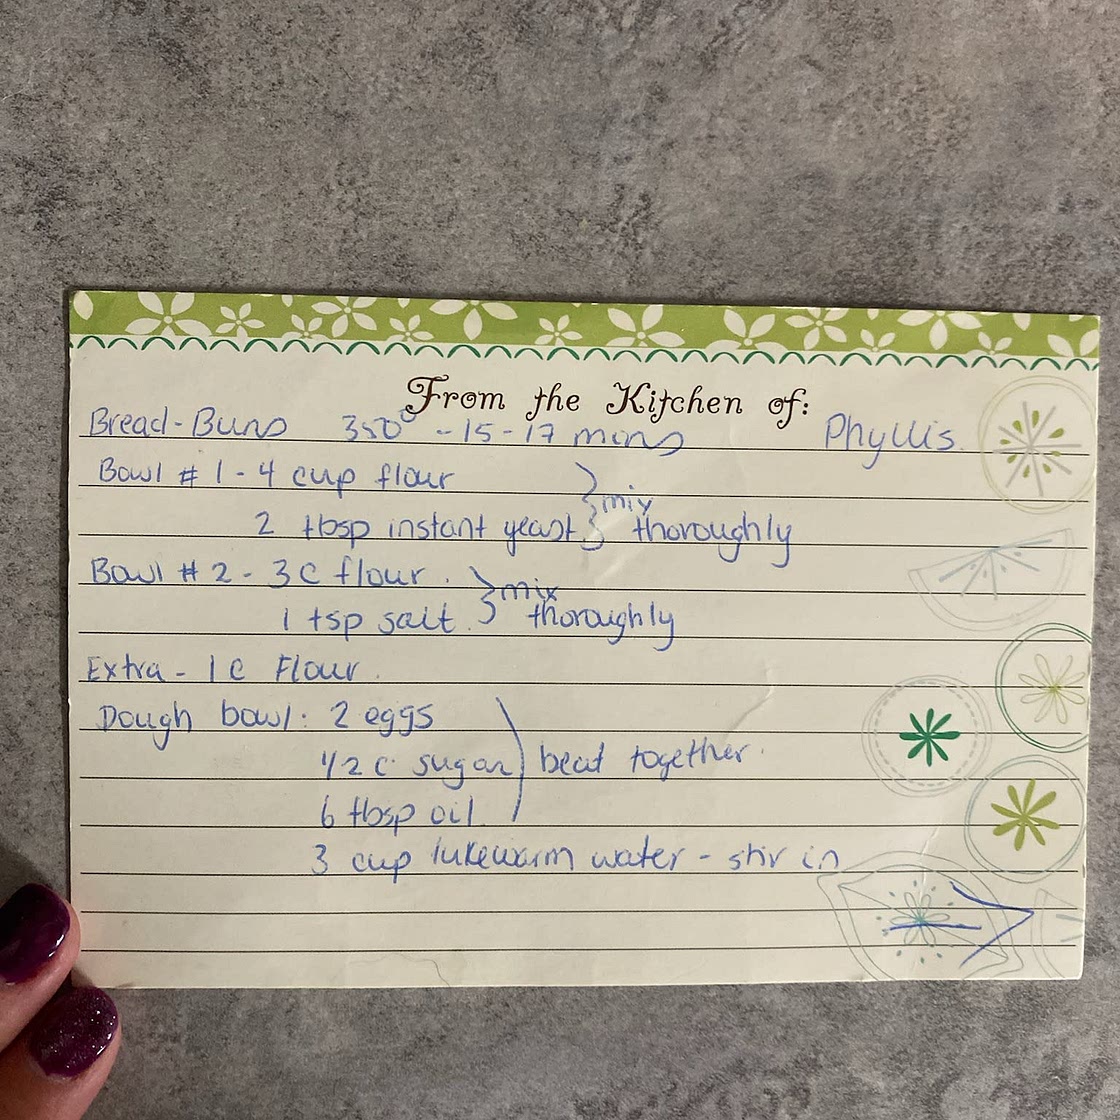 From the Kitchen of:
Bread-Buns 350° - 15 - 17 mins Phyllis.
Bowl # 1 - 4 cup flour
mix
2 tbsp instant yeast thoroughly
Bowl # 2 - 3 c flour.
mix
1 tsp salt. thoroughly
Extra - 1 c Flour.
Dough bowl: 2 eggs
1/2 c. sugar beat together.
6 tbsp oil
3 cup lukewarm water - stir in